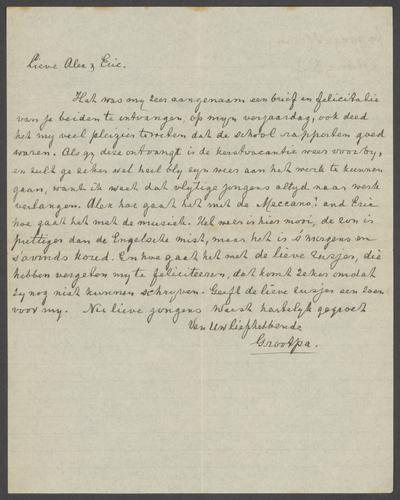 Lieve Alex & Eric.
Het was my zeer aangenaam een brief en felicitatie
van je beiden te ontvangen, op myn verjaardag, ook deed
het my veel pleizier te weten dat de school rapporten goed
waren. Als gy deze ontvangt is de kerstvacantie weer voorby,
en zult ge zeker wel heel bly zyn weer aan het werk te kunnen
gaan, want ik weet dat vlytige jongens altyd naar werk
verlangen. Alex hoe gaat het met de Meccano? and Eric
hoe gaat het met de muziek. Het weer is hier mooi, de zon is
prettiger dan de Engelsche mist, maar het is 's morgens en
s'avonds koud. En hoe gaat het met de lieve zusjes, die
hebben vergeten my te feliciteeren, dat komt zeker omdat
zy nog niet kunnen schryven. Geeft de lieve zusjes een zoen
voor my. Nu lieve jongens weest hartelyk gegroet
Van Uw liefhebbende
Grootpa.